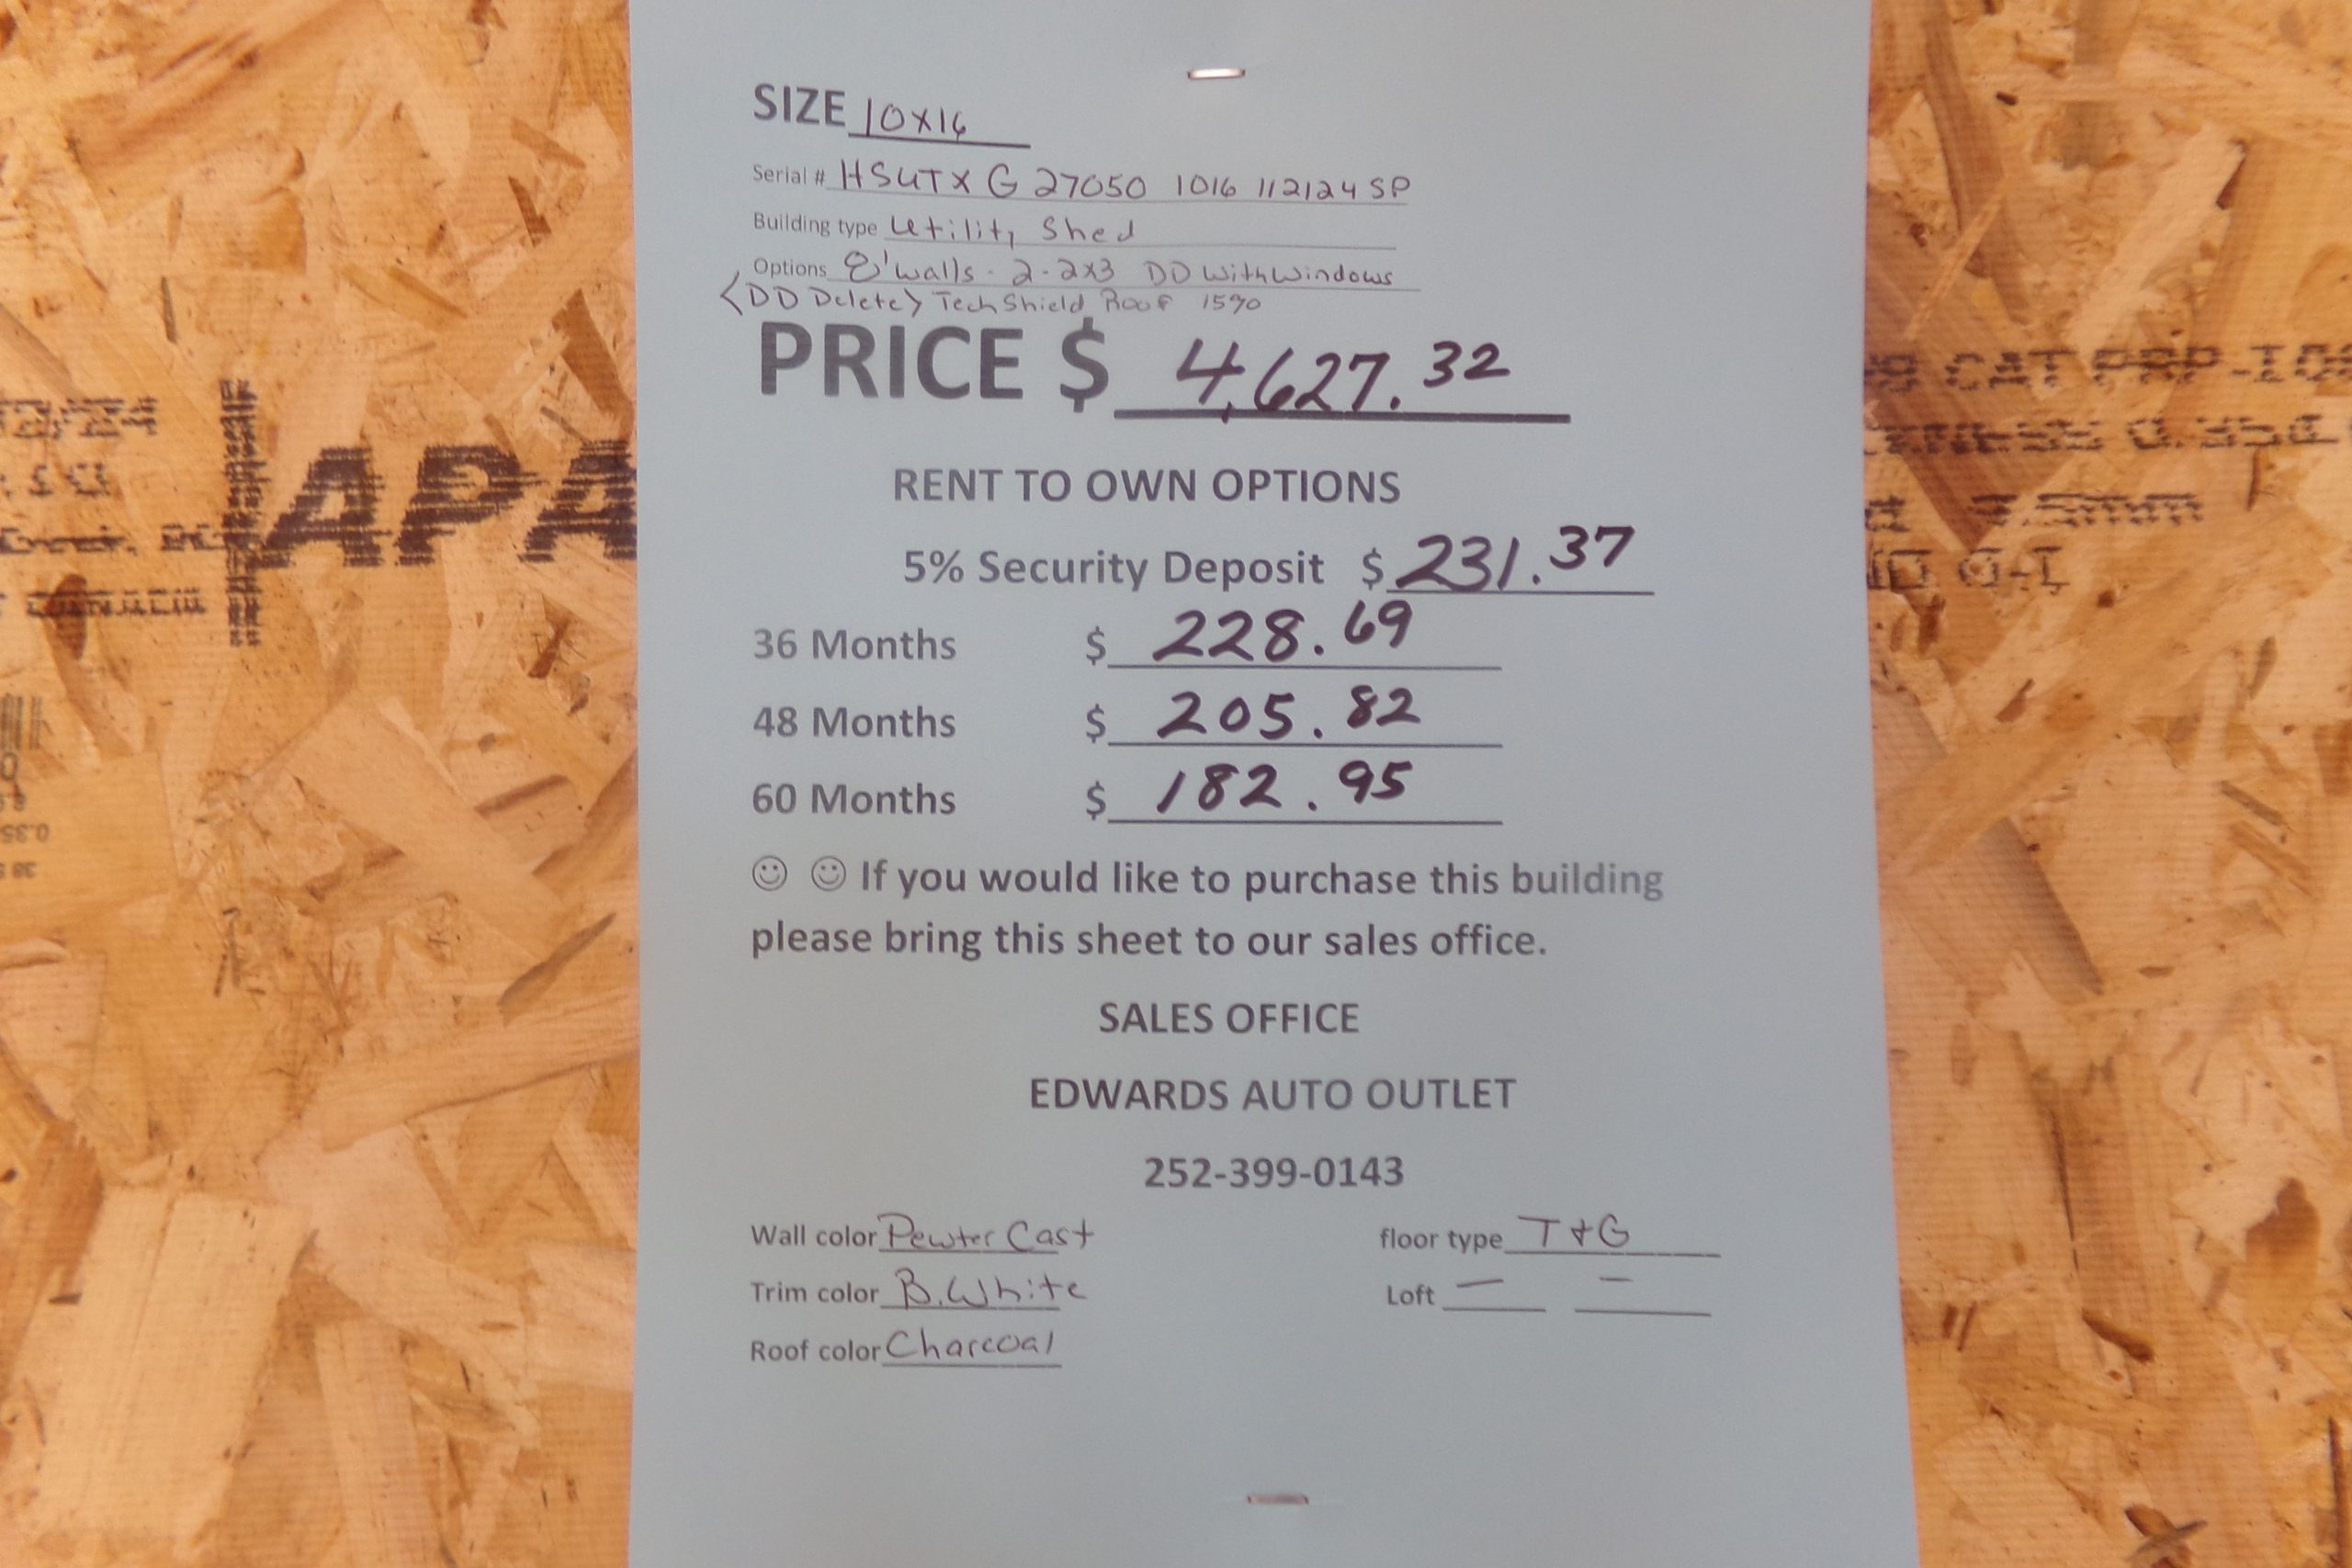 SIZE 10X16
Serial # HSUTX G 27050 1016 112124 SP
Building type Utility Shed
Options 8' walls - 2-2x3 DD with windows
<DD Delete> TechShield Roof 15%
PRICE $ 4,627.32
RENT TO OWN OPTIONS
5% Security Deposit $ 231.37
36 Months $ 228.69
48 Months $ 205.82
60 Months $ 182.95
☺ ☺ If you would like to purchase this building
please bring this sheet to our sales office.
SALES OFFICE
EDWARDS AUTO OUTLET
252-399-0143
Wall color Pewter Cast floor type T+G
Trim color B. White Loft — —
Roof color Charcoal
APA
CAT PRP-108